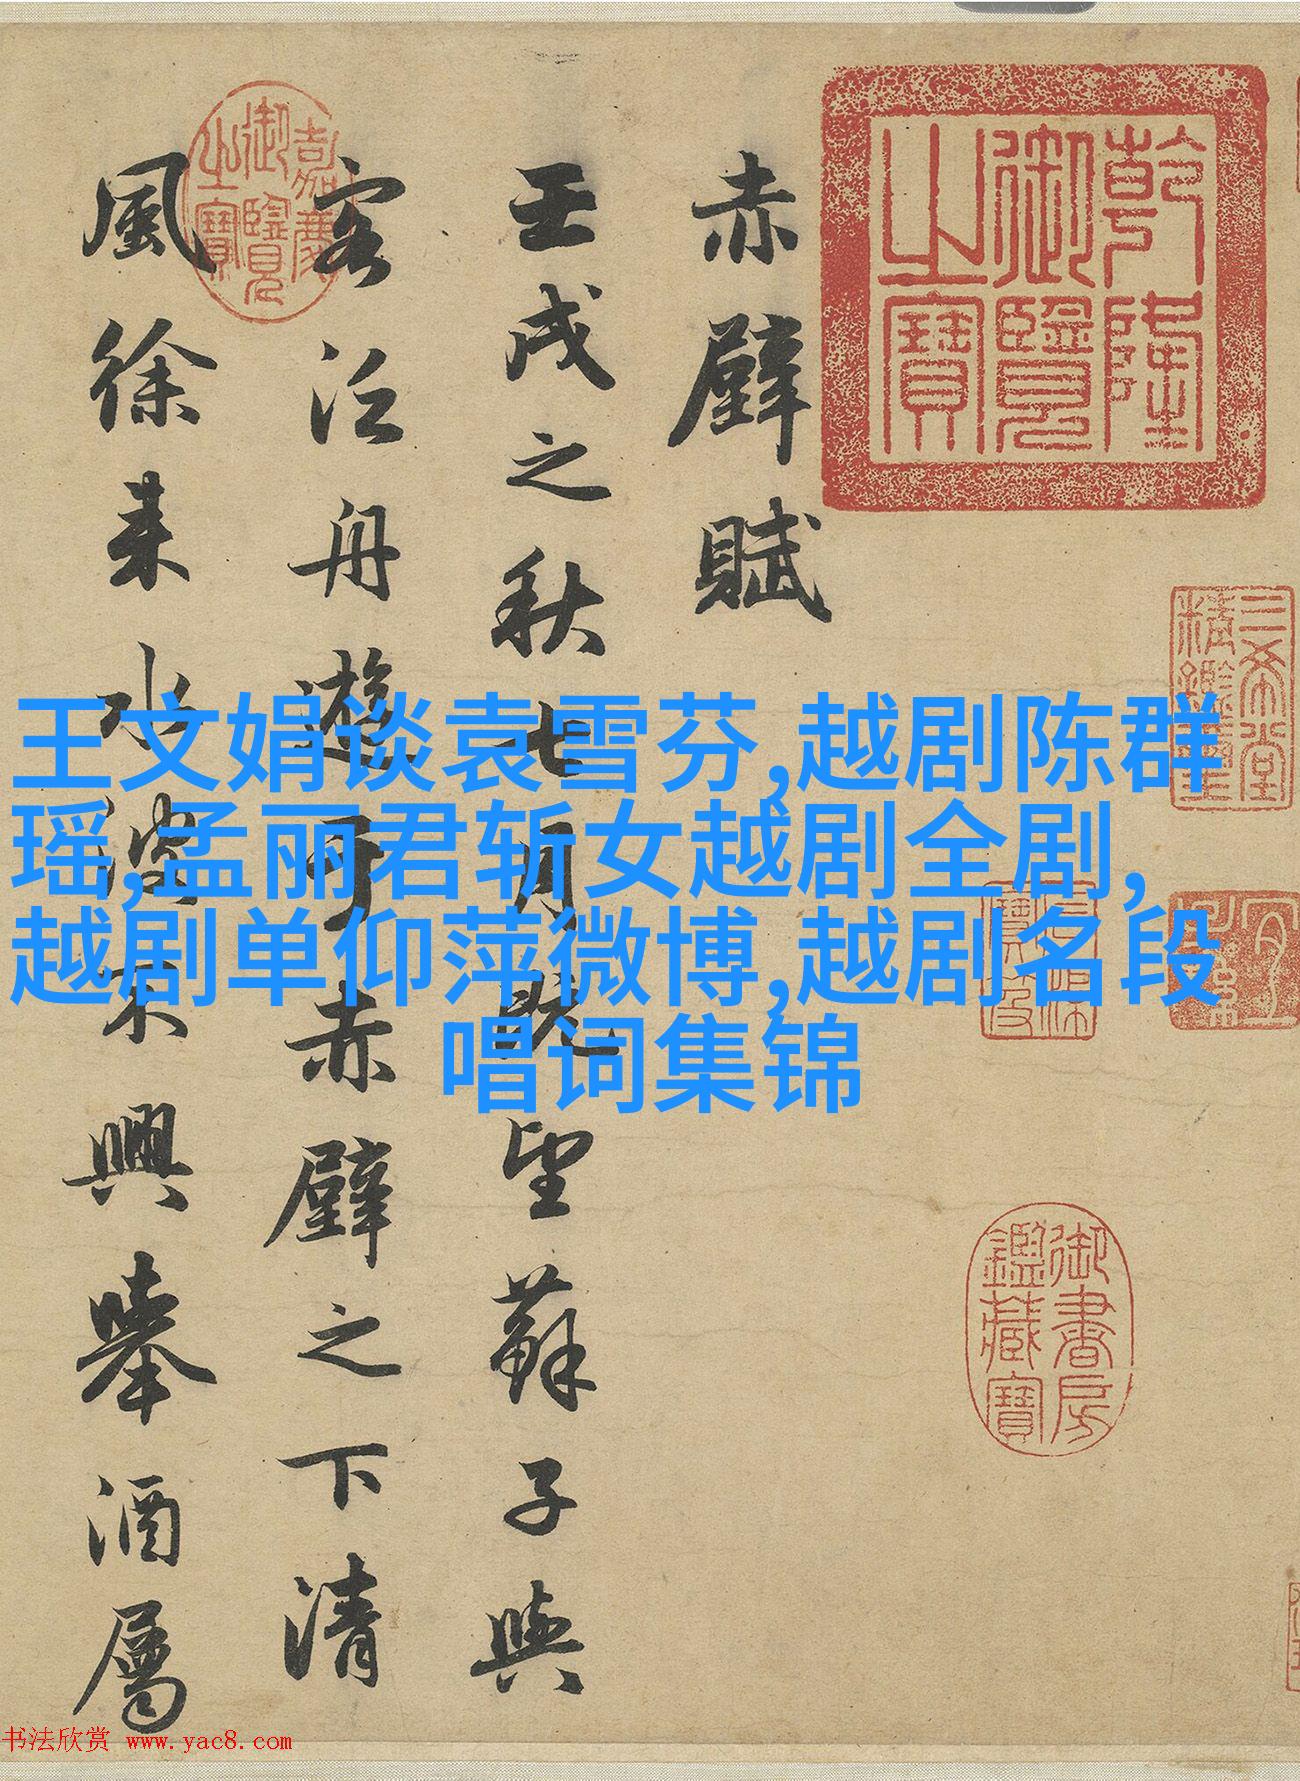 乾隆御覽之寶
三希堂精鑑璽
宜子孫
御書房鑑藏寶
赤壁賦
壬戌之秋七月既望蘇子與
客泛舟遊于赤壁之下清
嘉慶御覽之寶
風徐来水波不興舉酒屬
王文娟谈袁雪芬,越剧陈群
瑶,孟丽君斩女越剧全剧,
越剧单仰萍微博,越剧名段
唱词集锦
书法欣赏 www.yac8.com